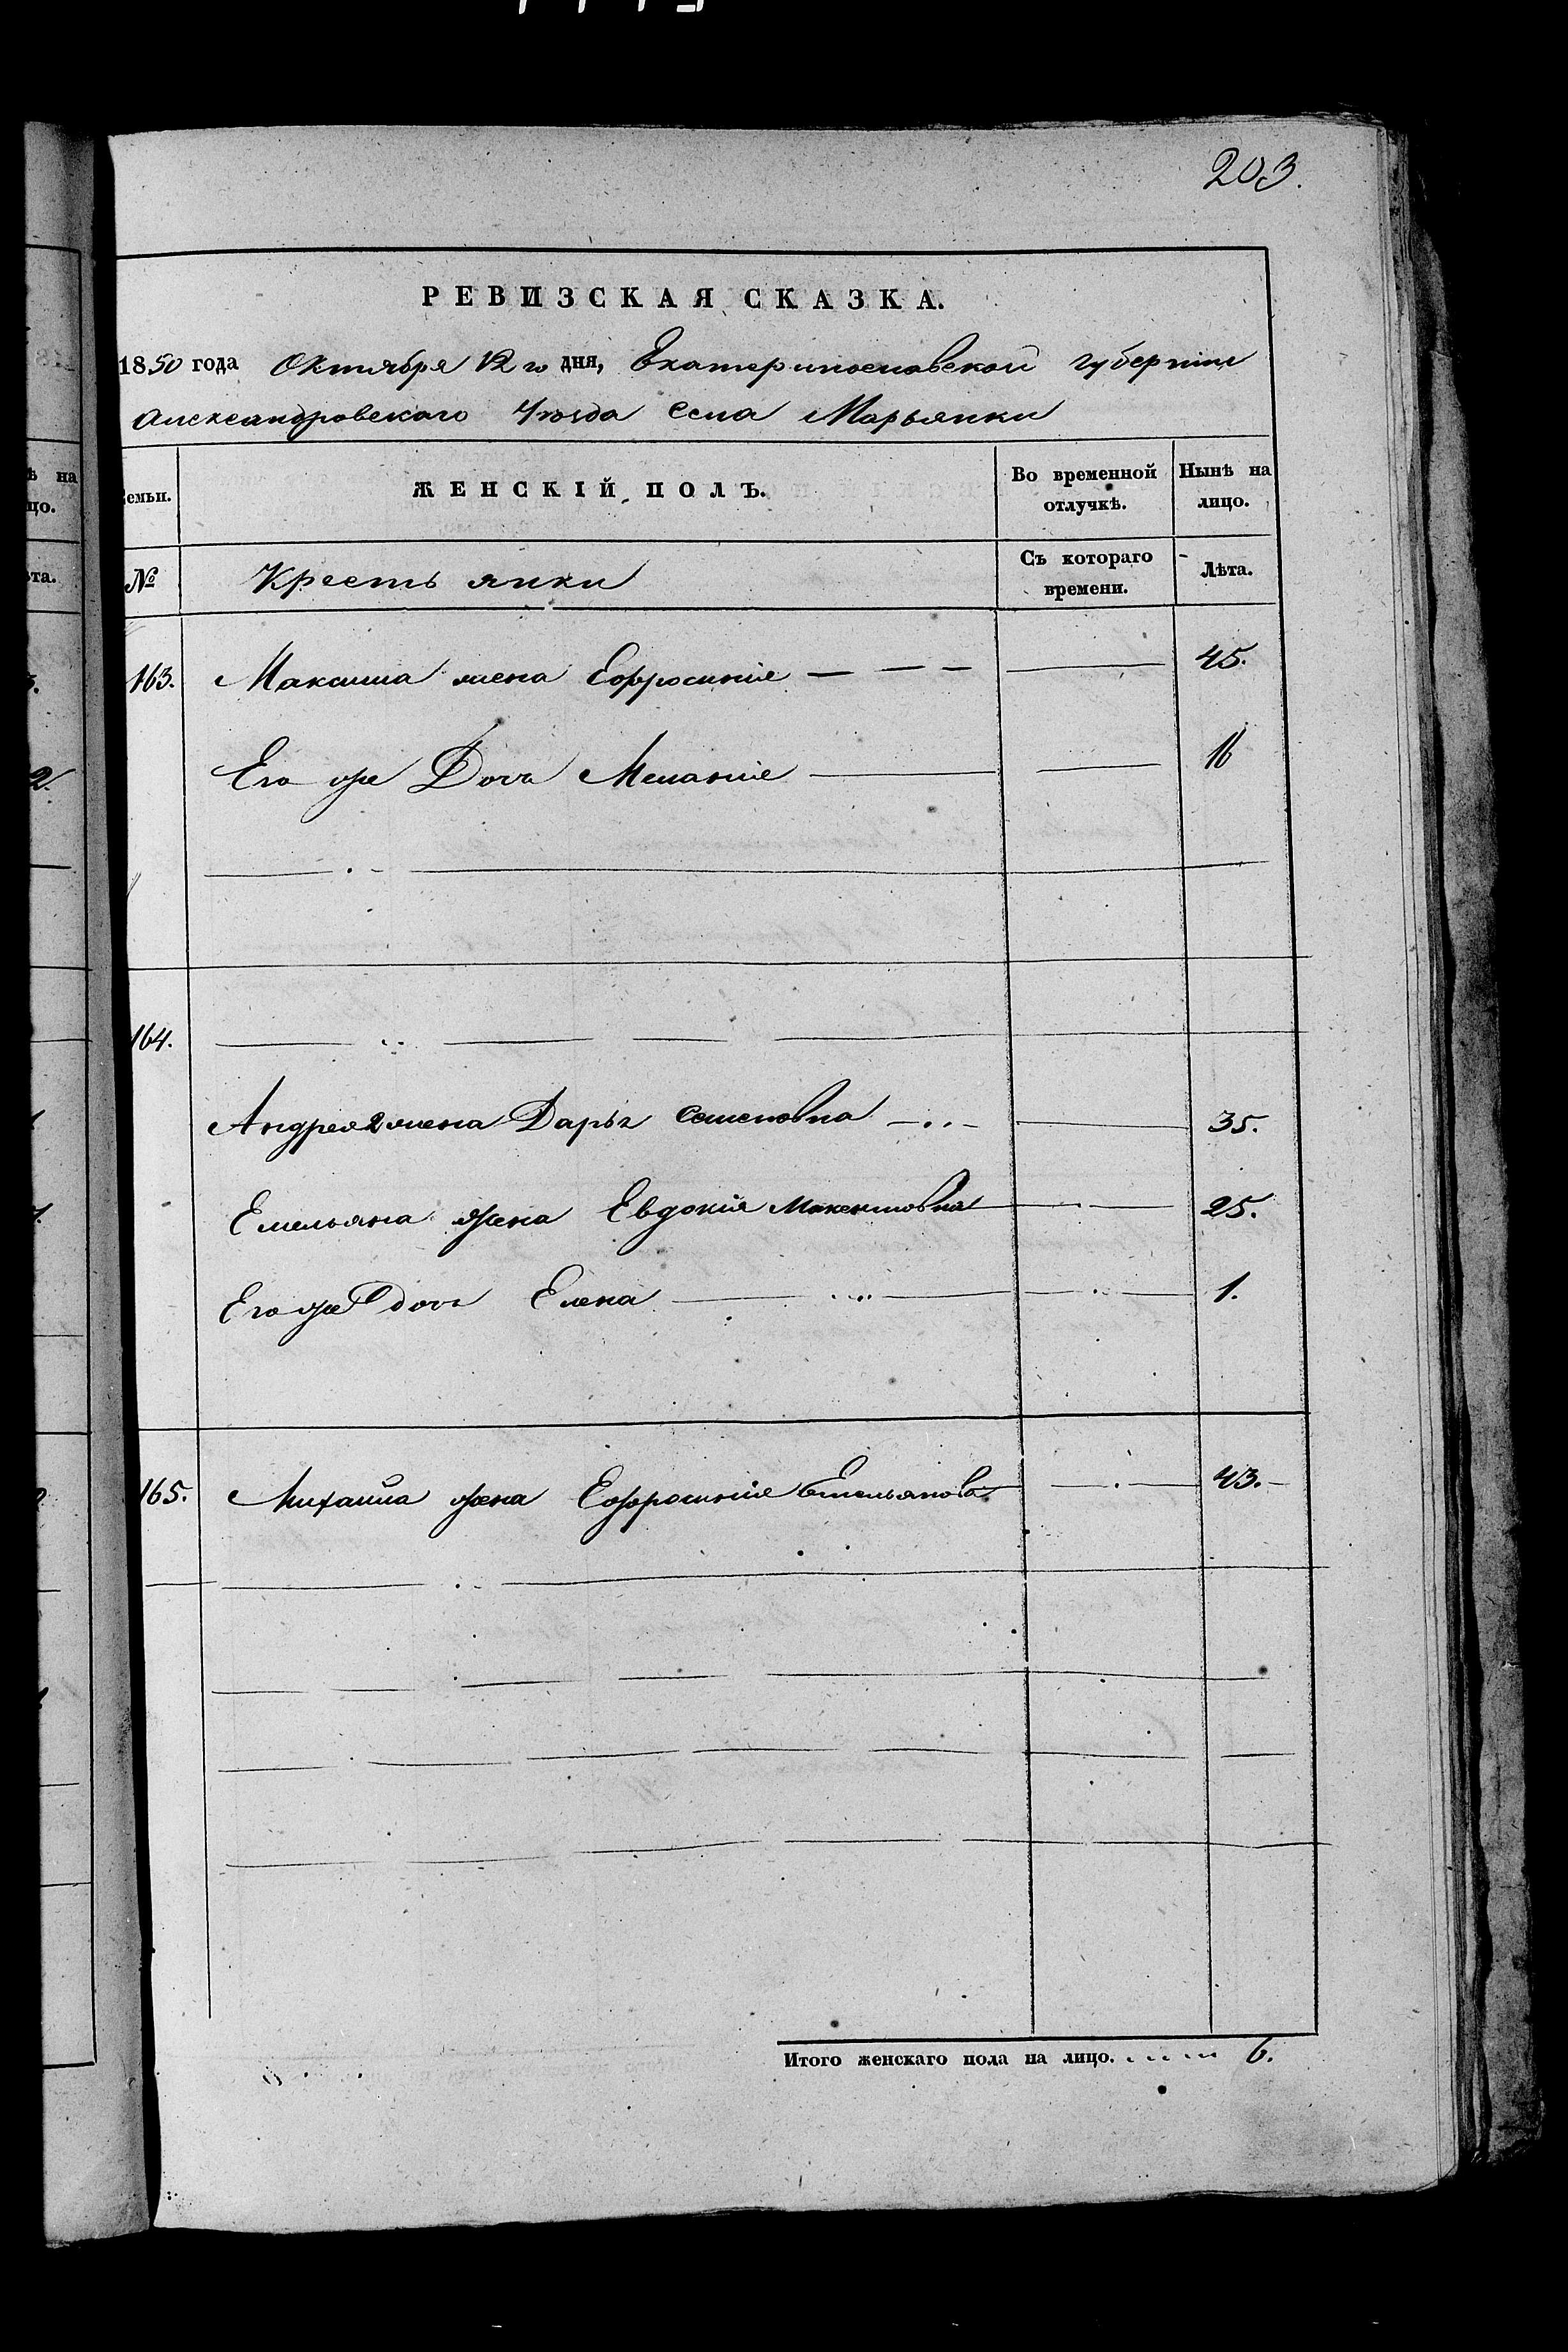 203.
РЕВИЗСКАЯ СКАЗКА.
1850 года Октября 12 го дня, Екатеринославской губернiи
Александровскаго Уѣзда села Марьянки
Семьи. ЖЕНСКIЙ ПОЛЪ. Во временной отлучкѣ. Нынѣ на лицо.
№ Крестьянки Съ котораго времени. Лѣта.
163. Максима жена Ефросинiя — — — — 45.
Его же Дочь Меланiя — — 16
164.
Андрея 2 жена Дарья Семеновна — — 35.
Емельяна жена Евдокiя — 25.
Его же дочь Елена — — 1.
165. Михайла жена Ефросинiя Емельянова — 43.
Итого женскаго пола на лицо. 6.